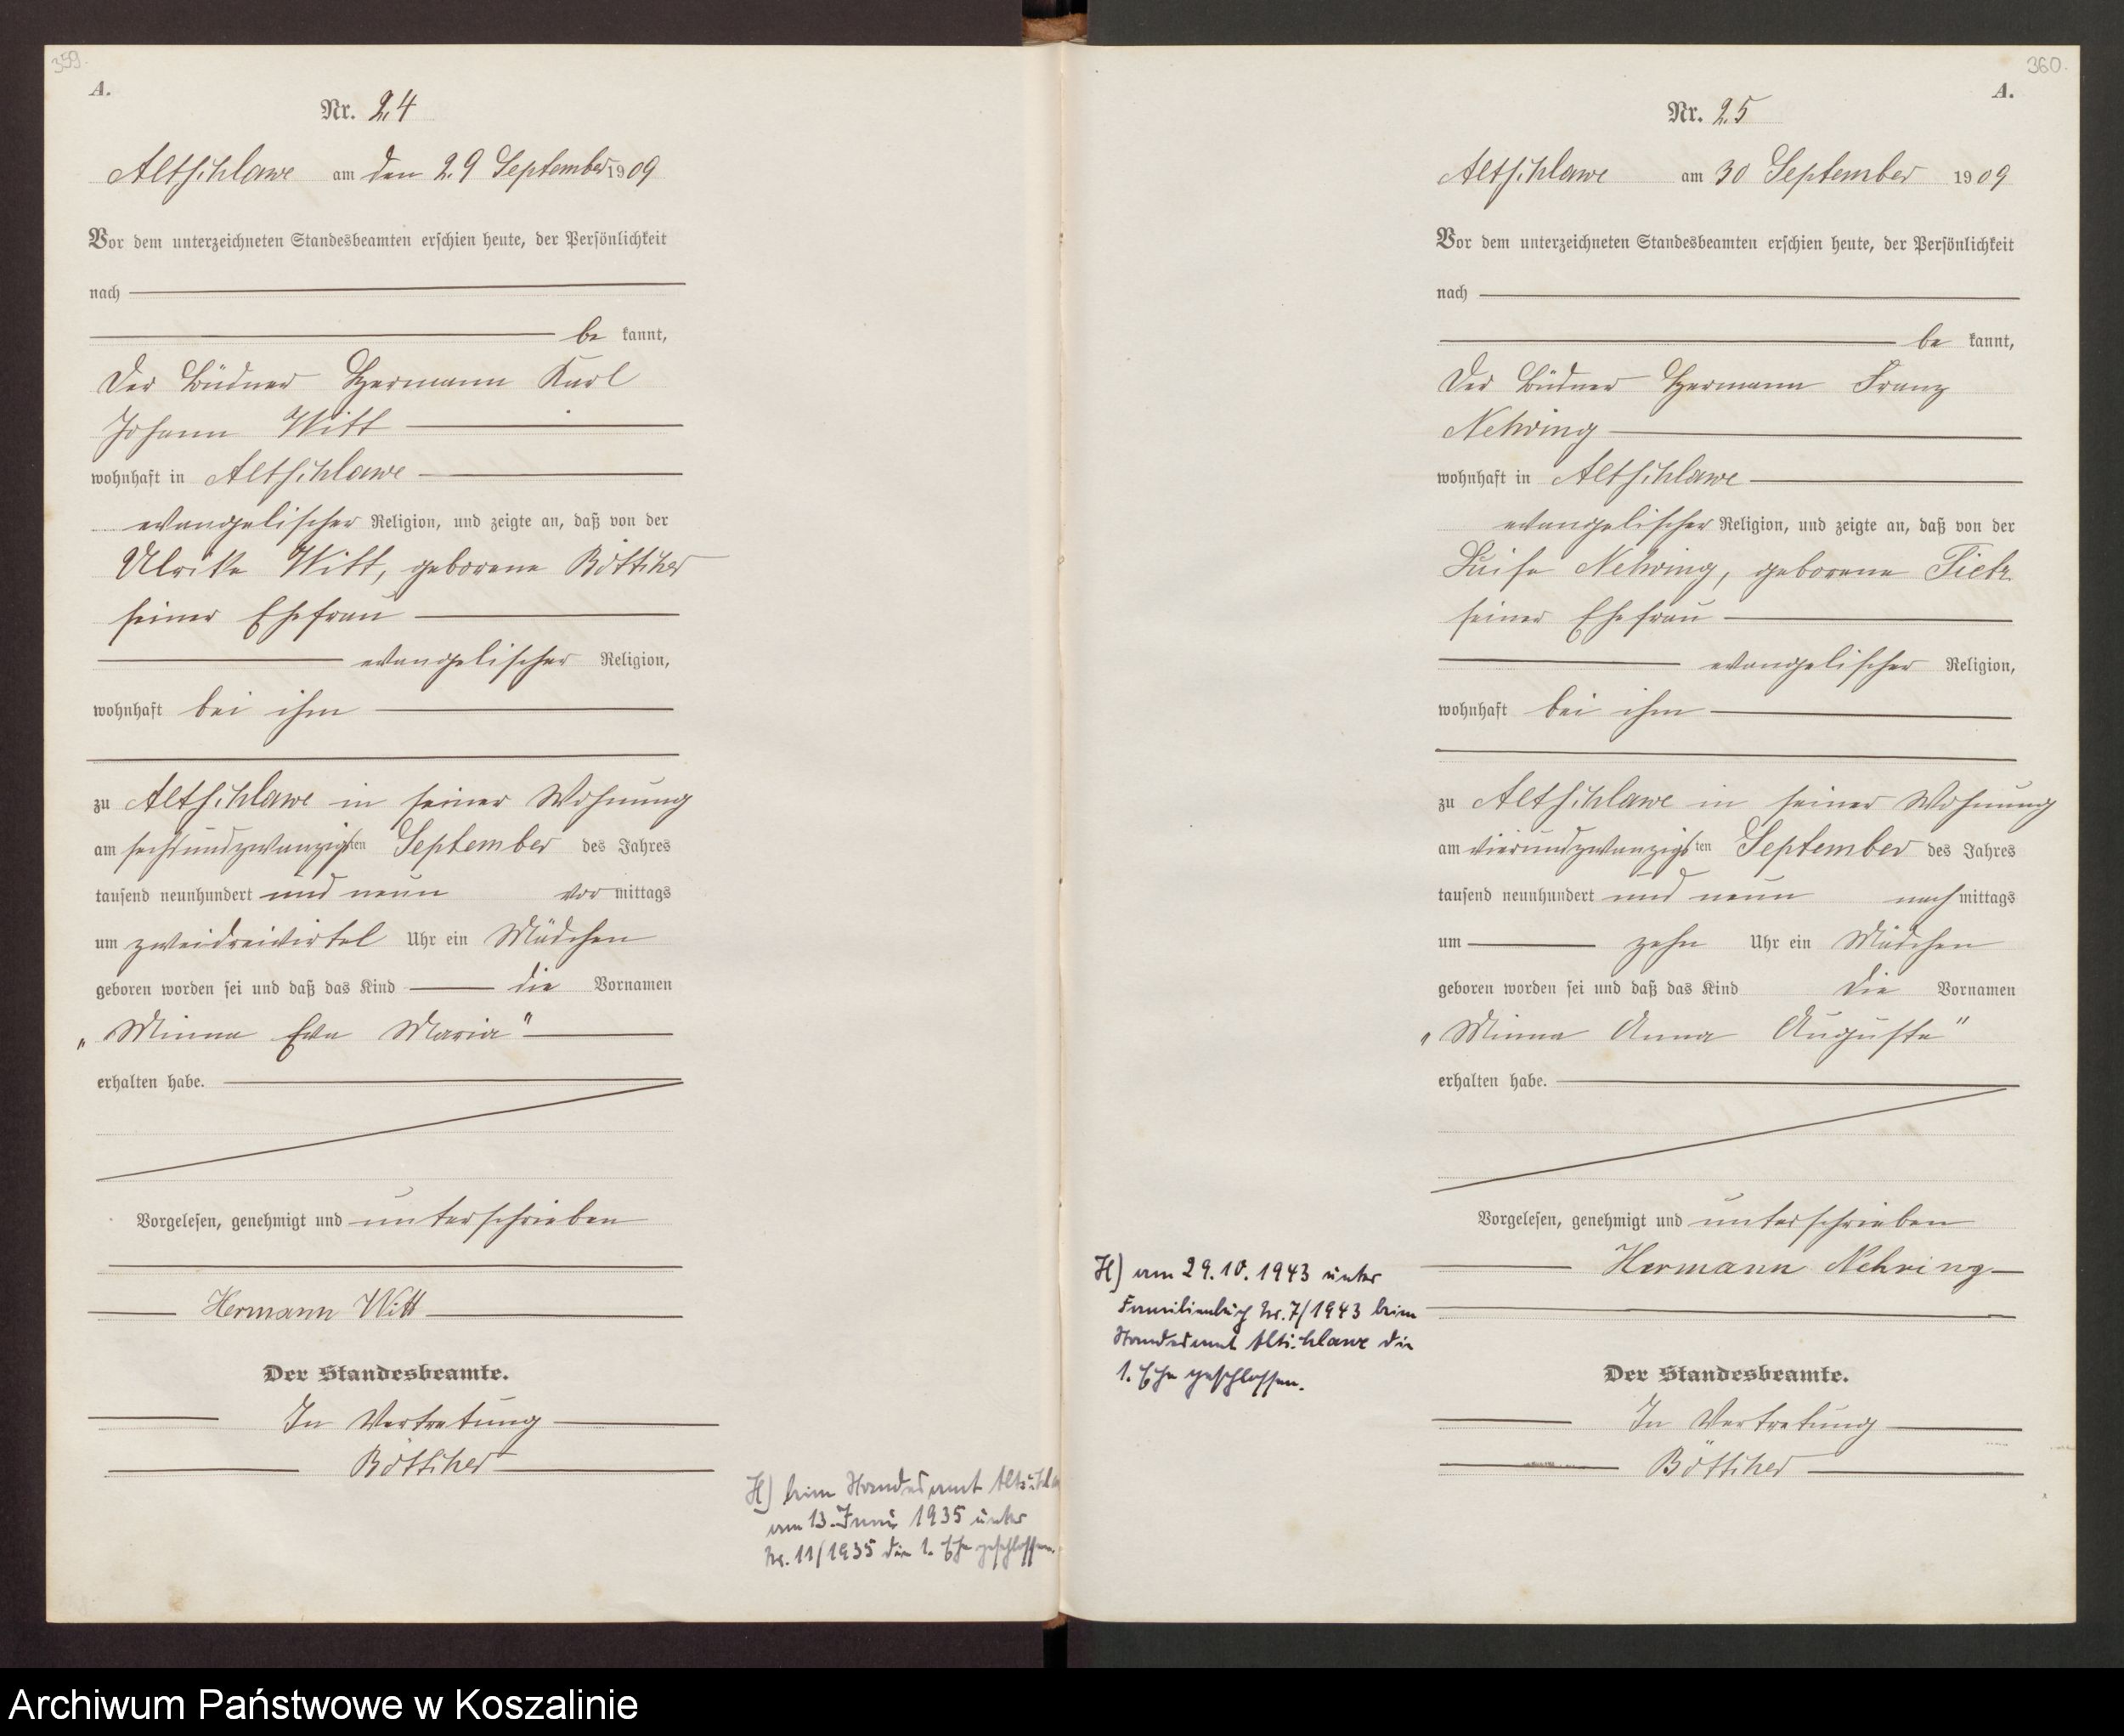 359.
A.
Nr. 24
Altschlawe am den 29 September 1909
Vor dem unterzeichneten Standesbeamten erschien heute, der Persönlichkeit
nach
be kannt,
der Büdner Hermann Karl
Johann Witt
wohnhaft in Altschlawe
evangelischer Religion, und zeigte an, daß von der
Ulrike Witt, geborene Böttcher
seiner Ehefrau
evangelischer Religion,
wohnhaft bei ihm
zu Altschlawe in seiner Wohnung
am sechsundzwanzigsten September des Jahres
tausend neunhundert und neun vor mittags
um zweidreivirtel Uhr ein Mädchen
geboren worden sei und daß das Kind die Vornamen
„Minna Eva Maria"
erhalten habe.
Vorgelesen, genehmigt und unterschrieben
Hermann Witt
Der Standesbeamte.
In Vertretung
Böttcher
H) beim Standesamt Altschla
am 13. Juni 1935 unter
Nr. 11/1935 die 1. Ehe geschlossen.
360.
A.
Nr. 25
Altschlawe am 30 September 1909
Vor dem unterzeichneten Standesbeamten erschien heute, der Persönlichkeit
nach
be kannt,
der Büdner Hermann Franz
Nehring
wohnhaft in Altschlawe
evangelischer Religion, und zeigte an, daß von der
Luise Nehring, geborene Tietz
seiner Ehefrau
evangelischer Religion,
wohnhaft bei ihm
zu Altschlawe in seiner Wohnung
am vierundzwanzigsten September des Jahres
tausend neunhundert und neun nach mittags
um zehn Uhr ein Mädchen
geboren worden sei und daß das Kind die Vornamen
„Minna Anna Auguste"
erhalten habe.
Vorgelesen, genehmigt und unterschrieben
Hermann Nehring
Der Standesbeamte.
In Vertretung
Böttcher
H) am 29.10.1943 unter
Familienbuch Nr. 7/1943 beim
Standesamt Altschlawe die
1. Ehe geschlossen.
Archiwum Państwowe w Koszalinie